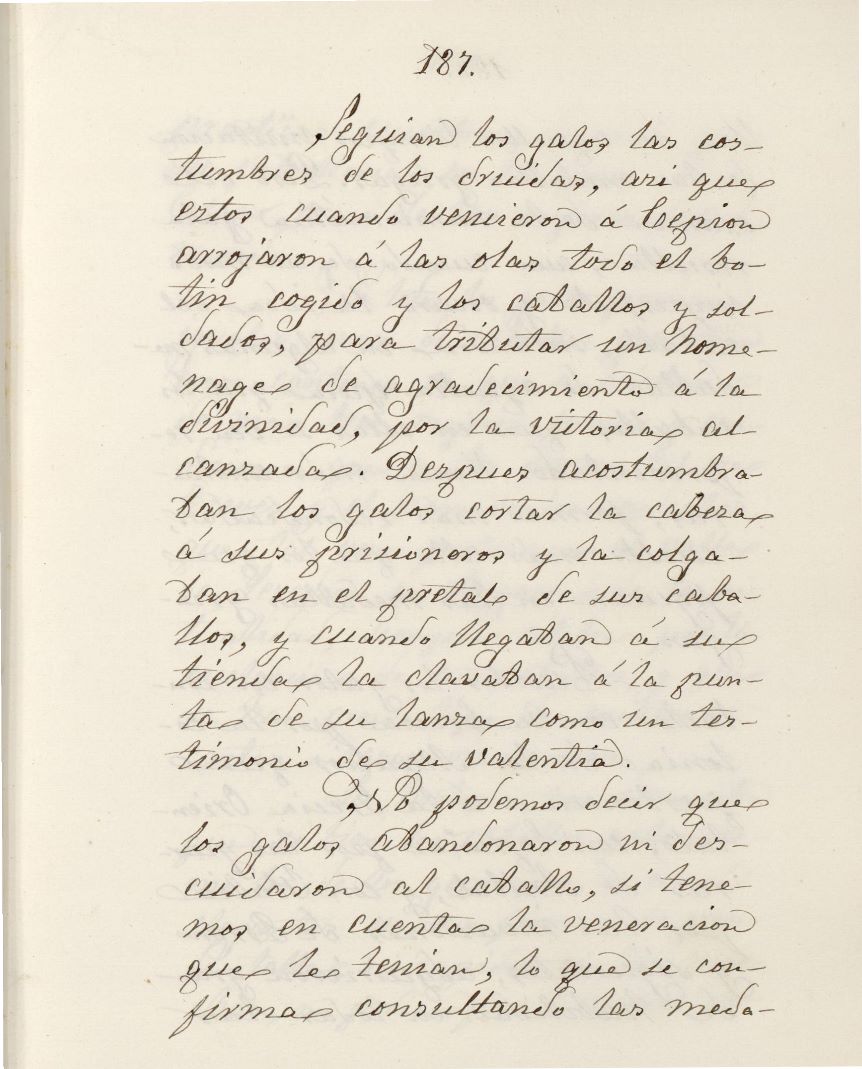 187.
Seguian los galos las cos-
tumbres de los druidas, asi que
estos cuando vencieron á Cepion
arrojaron á las olas todo el bo-
tin cogido y los caballos y sol-
dados, para tributar un home-
nage de agradecimiento á la
divinidad, por la victoria al
canzada. Despues acostumbra-
ban los galos cortar la cabeza
á sus prisioneros y la colga-
ban en el pretal de sus caba-
llos, y cuando llegaban á su
tienda la clavaban á la pun-
ta de su lanza como un tes-
timonio de su valentia.
No podemos decir que
los galos abandonaron ni des-
cuidaron al caballo, si tene-
mos en cuenta la veneracion
que le tenian, lo que se con-
firma consultando las meda-